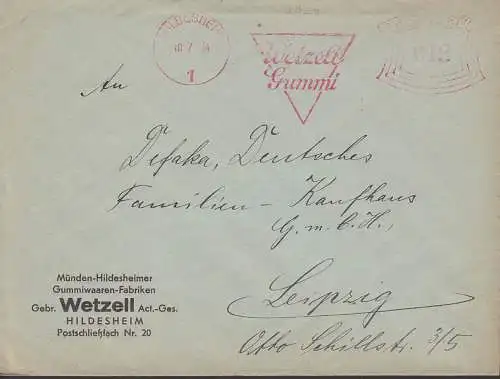 HILDESHEIM
1
Wetzell
Gummi
An
Defaka, Deutsches
Familien-Kaufhaus
G.m.b.H.,
Leipzig
Otto Schillstr. 3/5
Münden-Hildesheimer
Gummiwaaren-Fabriken
Gebr. Wetzell Act.-Ges.
HILDESHEIM
Postschließfach Nr. 20